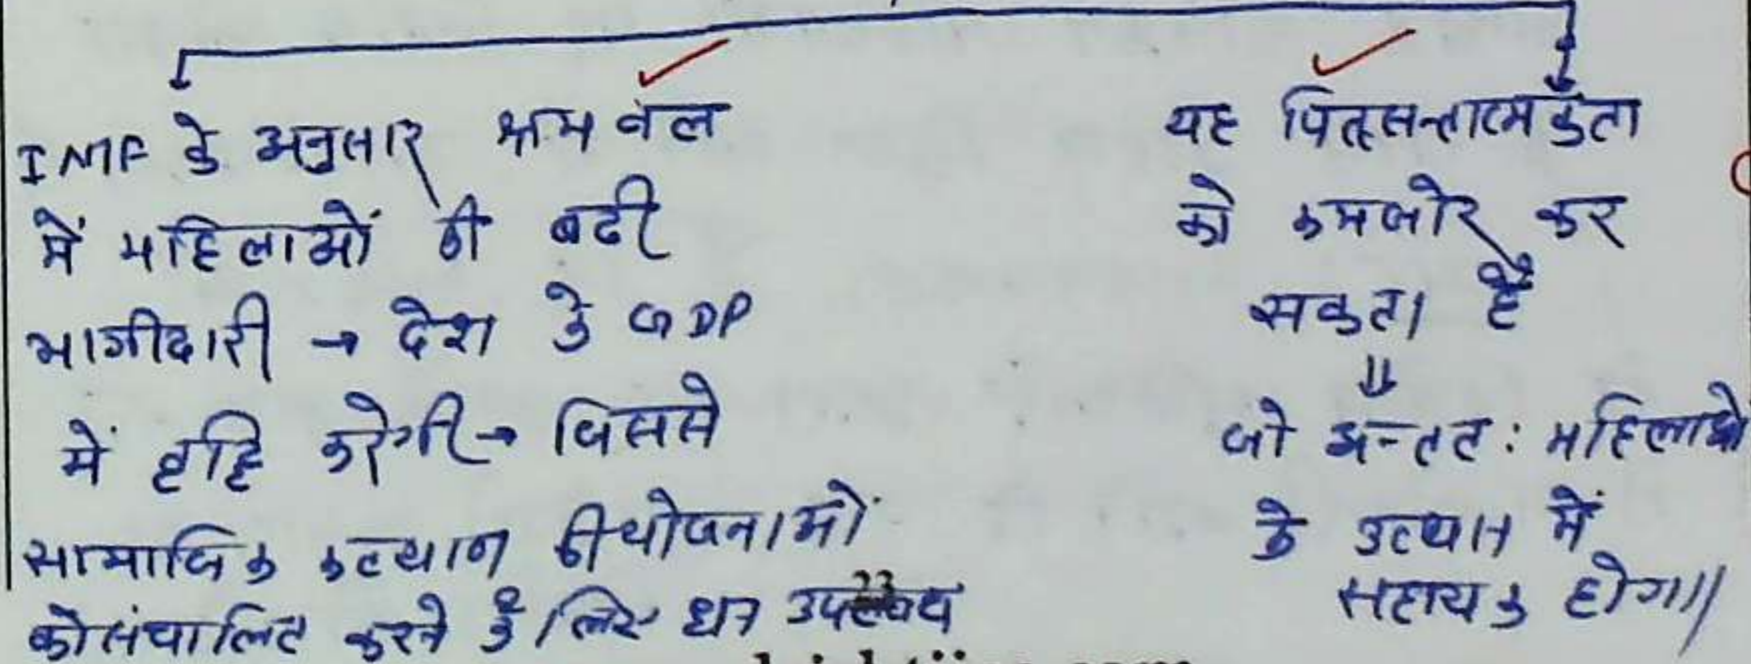 IMF के अनुसार श्रम बल
में महिलाओं की बढी
भागीदारी → देश के GDP
में वृद्धि करेगी → जिससे
सामाजिक कल्याण की योजनाओं
को संचालित करने के लिए धन उपलब्ध
यह पितृसत्तात्मकता
को कमजोर कर
सकता है
⇓
जो अन्ततः महिलाओं
के उत्थान में
सहायक होगा॥
23